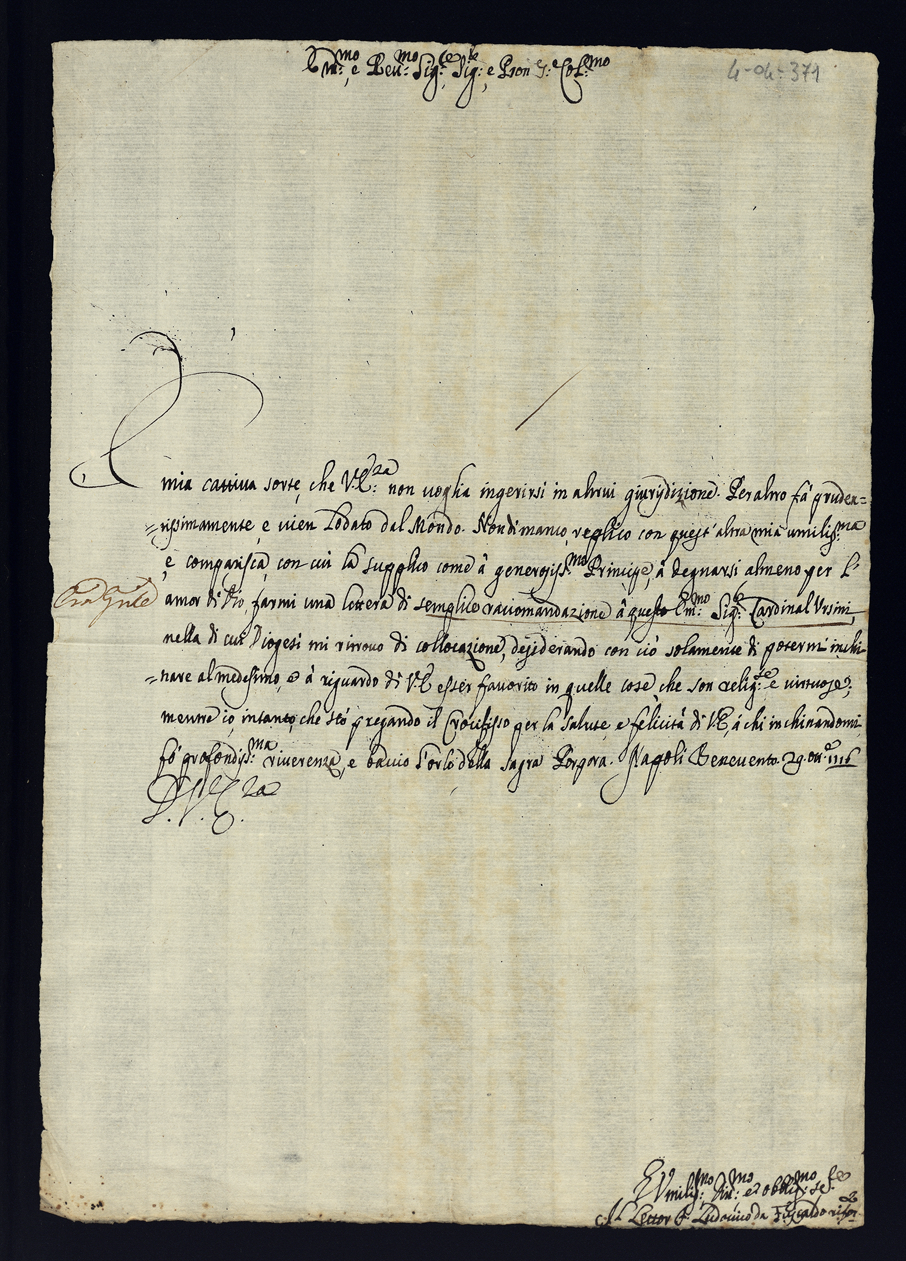 Em:mo e Reu:mo Sig:re Sig:re e Pron e Col:mo
4-04-371
E
mia cattiua sorte, che V.E:za non uoglia ingerirsi in altrui giurisdizione. Per altro fà pruden=
=tissimamente, e uien Lodato dal Mondo. Nondimanco, replico con quest'altra mia umilis:ma
e comparisca, con cui la supplico come à generosiss:mo Principe, à degnarsi almeno per l'
amor di Dio, farmi una lettera di semplice raccomandazione à questo Em:mo Sig:r Cardinal Ursini,
nella di cui Diogesi mi ritrouo di collocazione, desiderando con ciò solamente di potermi inchi=
=nare al medesimo, e à riguardo di V.E. esser fauorito in quelle cose che son relig:se e uirtuose;
mentre io intanto, che stò pregando il Crocifisso per la salute e felicità di V.E, à chi inchinandomi
fò profondis:ma riuerenza, e bacio l'orlo della sagra Porpora. Napoli Beneuento 29 ott:e 1716
D. V. E. za
Umilis:mo Diu:mo et obblig:mo se:
Lettor F. Ludouico da Fuscaldo rifor: